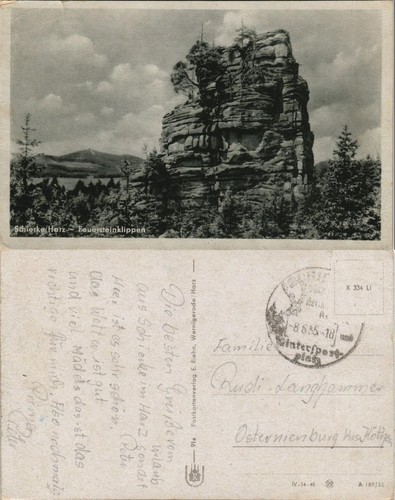 Schierke/Harz — Feuersteinklippen
Die besten Grüße vom
Urlaub
aus Schierke im Harz sendet
Hier ist es sehr schön.
Das Wetter ist gut
und viel Mädels das ist das
richtige für uns
9fa Postkartenverlag E. Riehn, Wernigerode/Harz
K 334 LI
-8.6.55-18
Wintersport-
platz
Familie
Rudi Langhammer
Osternienburg Krs. Köthen
IV-14-48
A 189/55